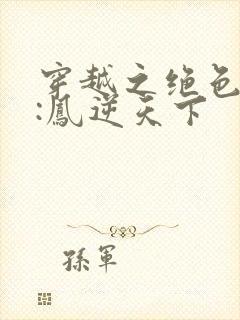 穿越之绝色
:鳳逆天下
孫軍